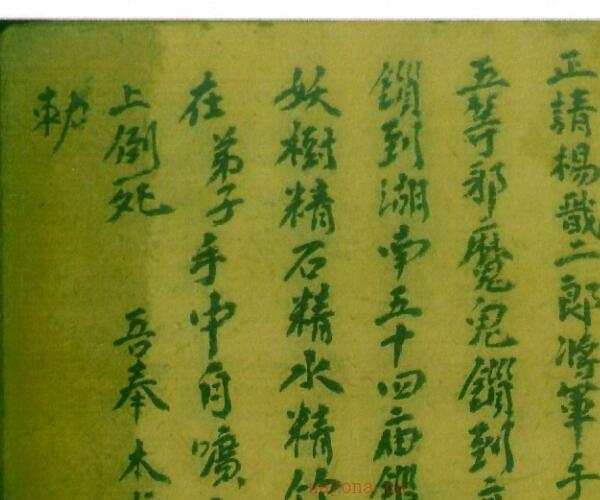 正請楊戩二郎將軍手
五等邪魔鬼鎖到
鎖到湖南五十四庙鎖
妖樹精石精水精
在弟子手中自
上倒死 吾奉木
敕